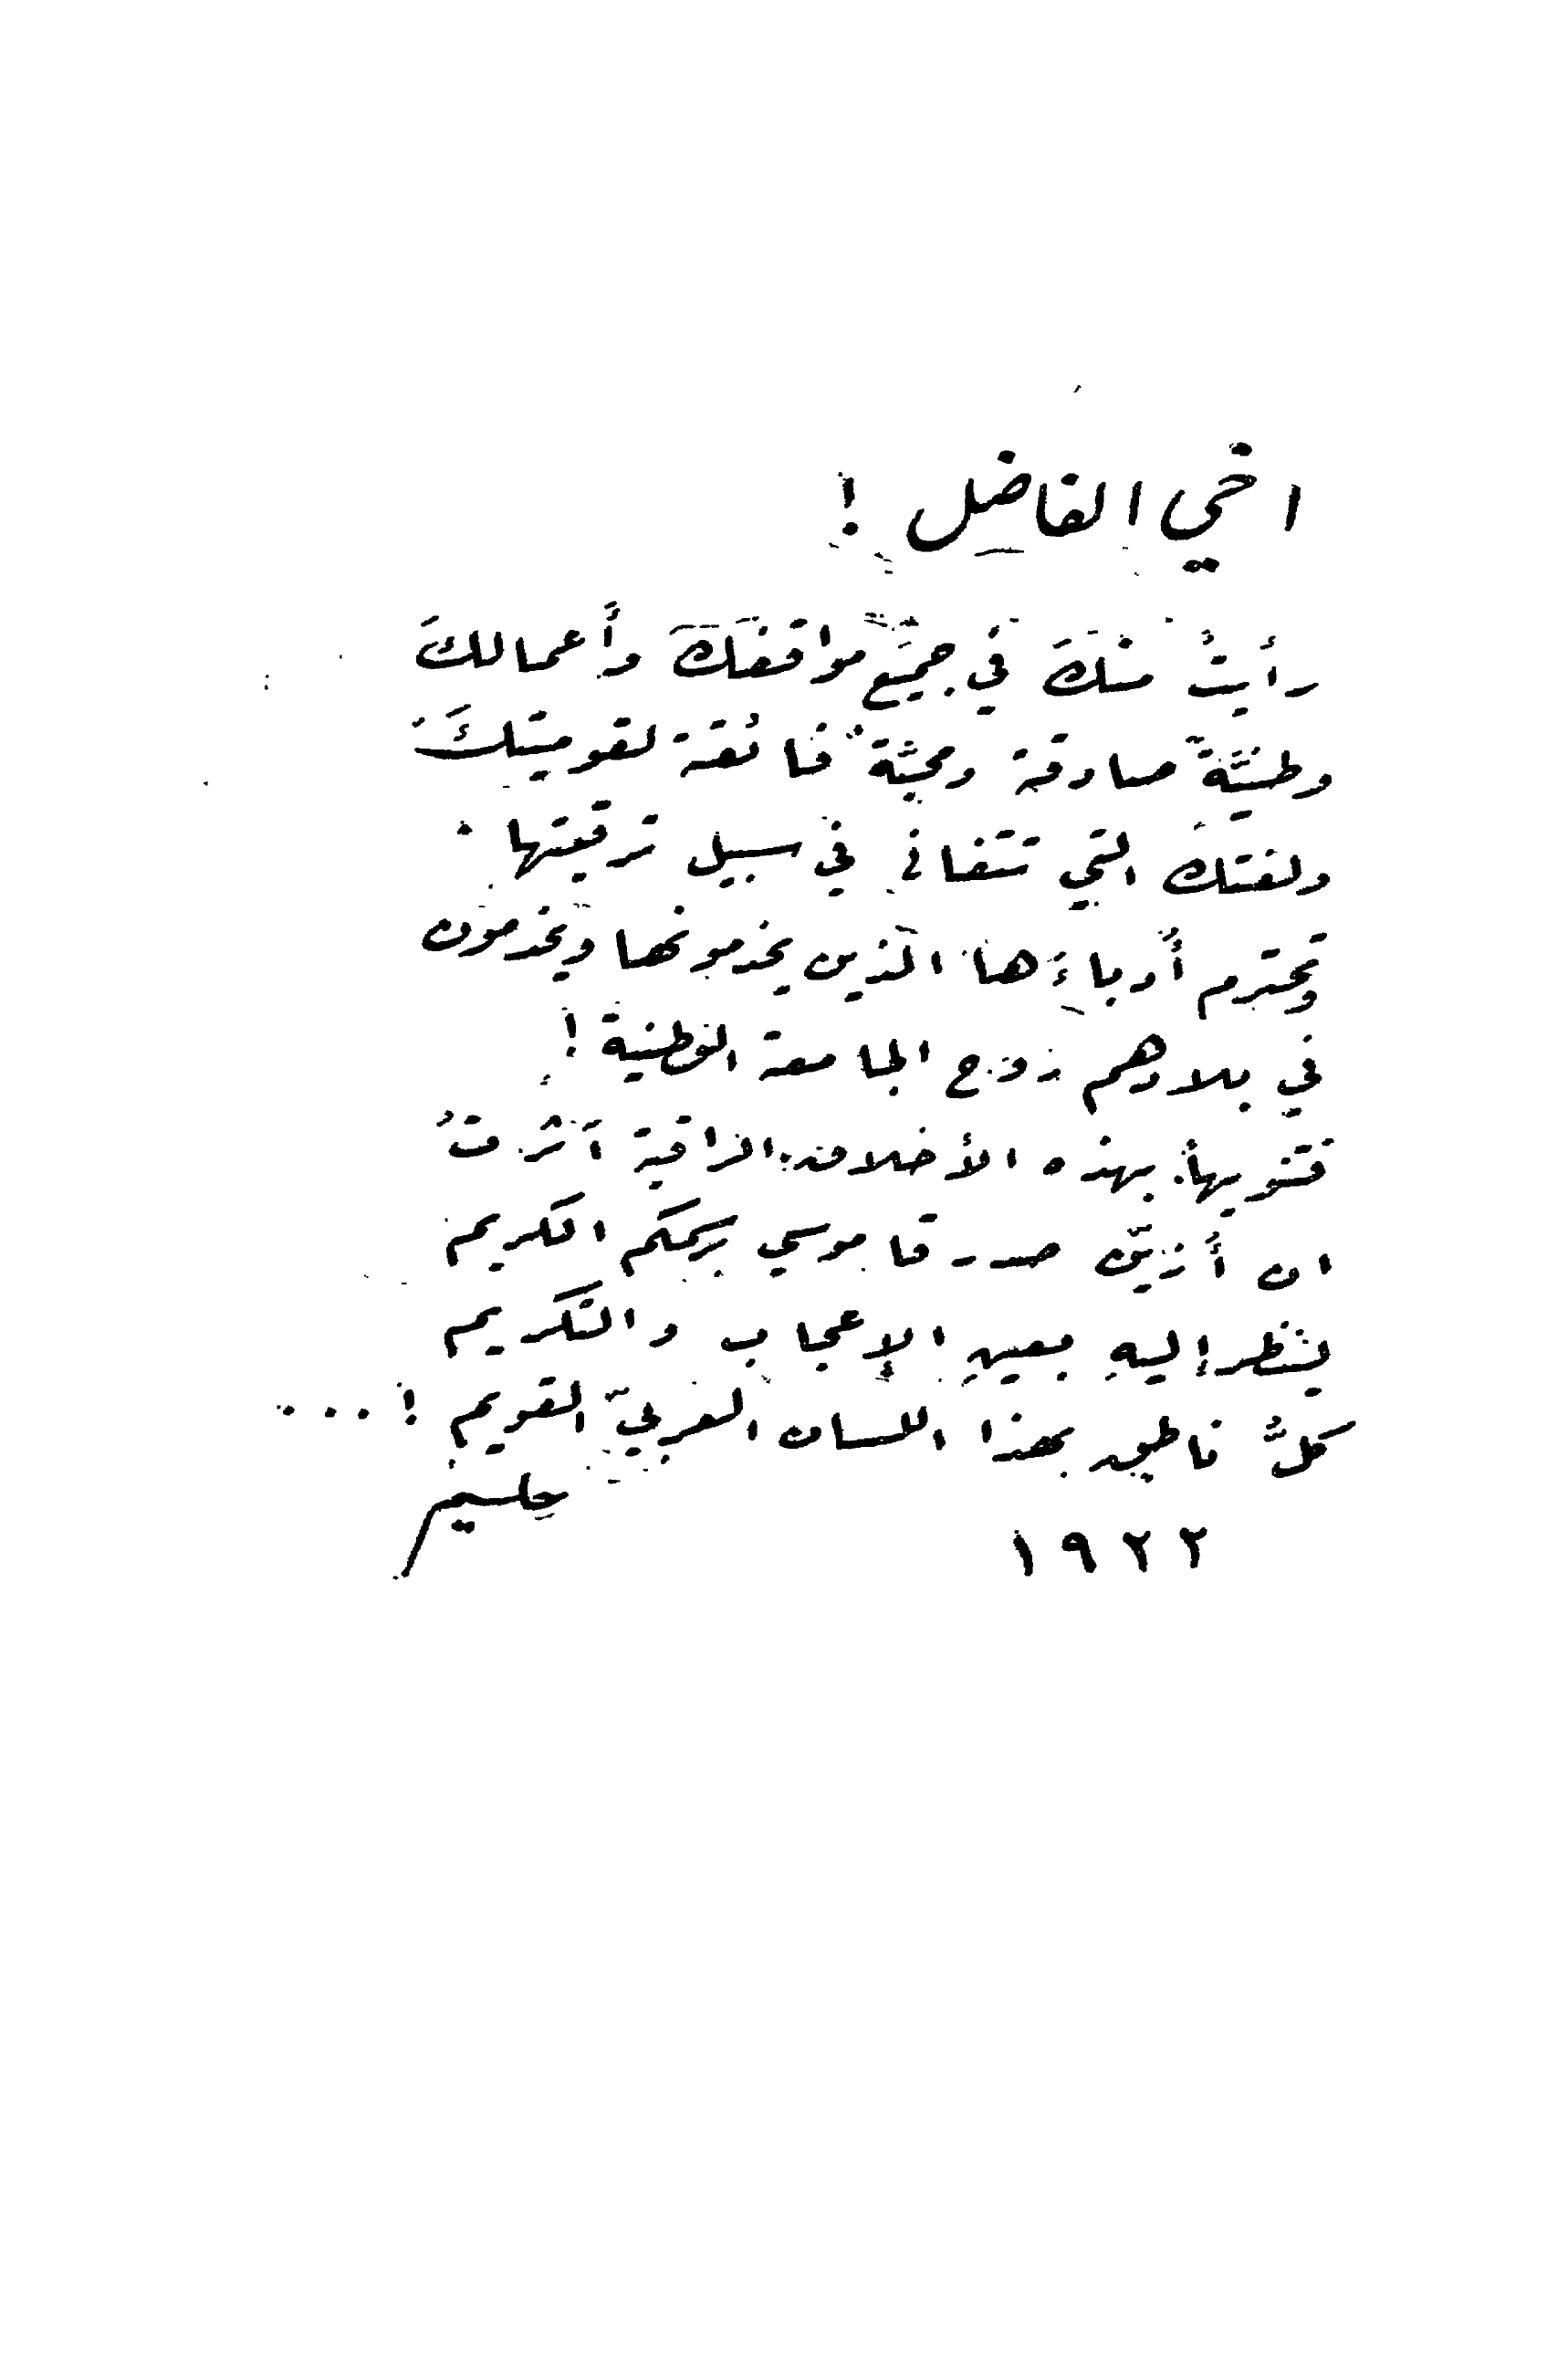 اخي الفاضل !
رأيتُ منكَ في جميع مواقفكَ وأَعمالكَ
وطنيَّةً صادقة ومحبَّةً فائقة لقوميتكَ
ولغتك التي تتفانى في سبيل ترقيتها .
وتحترم أُدباءَها الذين يخدمونها ويخدمون
في بلادهم روح الجامعة الوطنية !
فتنويهاً بهذه الأخلاق الراقية آثرتُ
ان أُزيّن صدر قاموسي برسمكم الكريم
لينظر إليهِ بعينِ الإعجاب والتكريم
كلُّ ناطق بهذا اللسان العربيّ القويم ! ...
حليم
١٩٢٢